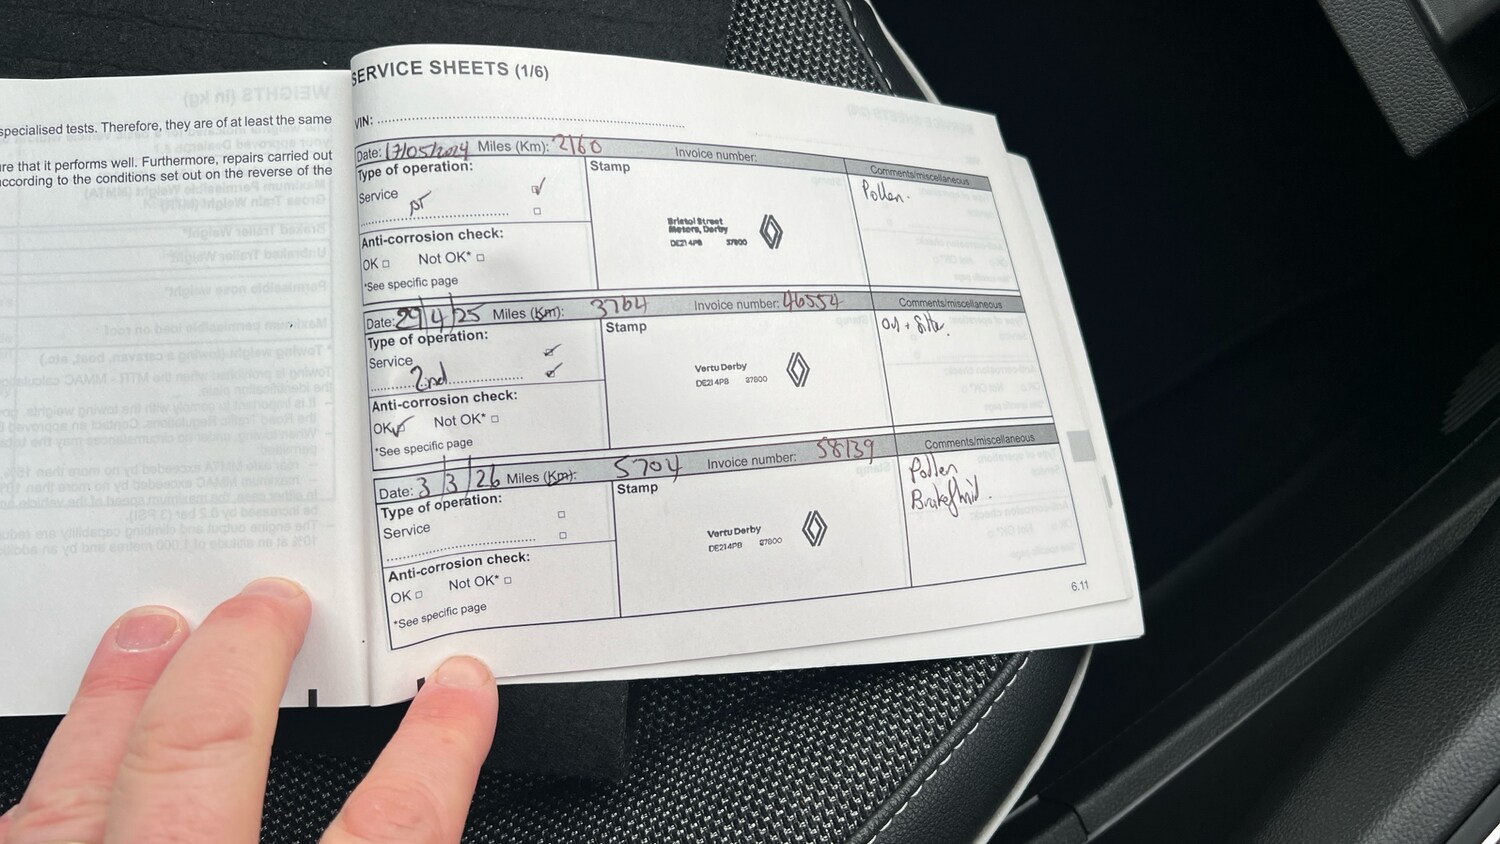 specialised tests. Therefore, they are of at least the same
re that it performs well. Furthermore, repairs carried out
according to the conditions set out on the reverse of the
SERVICE SHEETS (1/6)
VIN:
Date: 17/05/2024 Miles (Km): 2160 Invoice number:
Type of operation:
Service
Anti-corrosion check:
OK Not OK*
*See specific page
Stamp
Bristol Street
Motors, Derby
DE21 4PB 37800
Comments/miscellaneous
Pollen.
Date: 29/4/25 Miles (Km): 3764 Invoice number: 46554
Type of operation:
Service
2nd
Anti-corrosion check:
OK Not OK*
*See specific page
Stamp
Vertu Derby
DE21 4PB 37800
Comments/miscellaneous
Date: 3/3/26 Miles (Km): 5704 Invoice number: 58139
Type of operation:
Service
Anti-corrosion check:
OK Not OK*
*See specific page
Stamp
Vertu Derby
DE21 4PB 37800
Comments/miscellaneous
Pollen
Brakefluid.
6.11